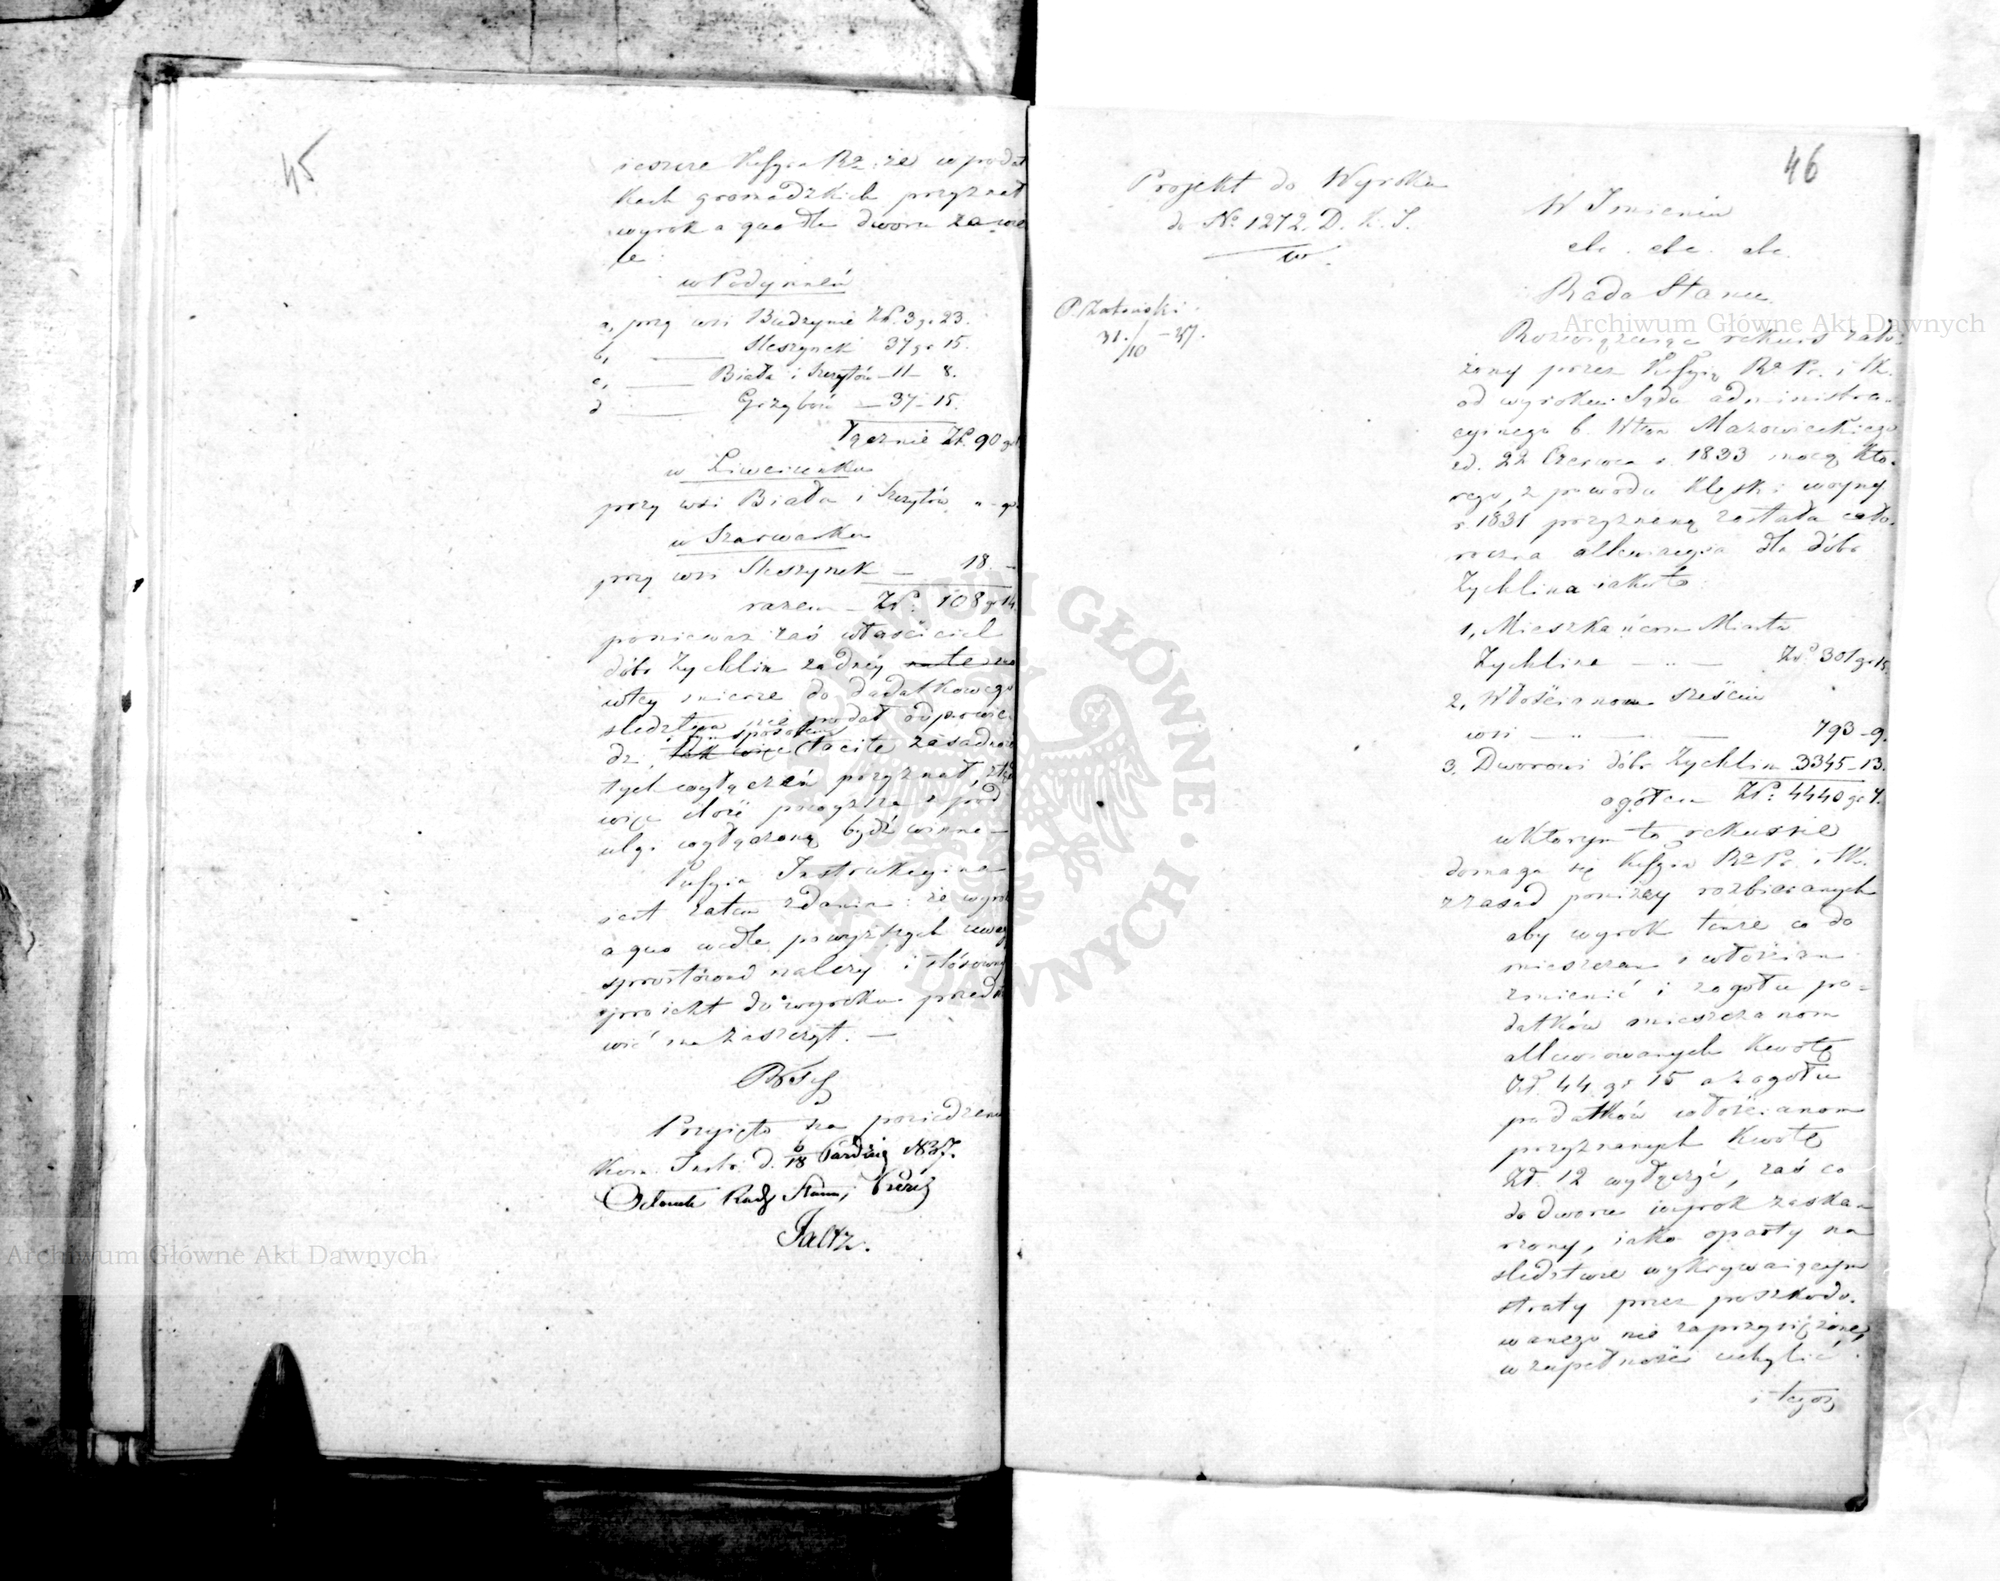 45
ieszcze Kssya Rz: że w podat
kach gromadzkich przyznał
wyrok a quo dla dworu za wie
le:
w Podymném
a, przy wsi Budzynie Zł. 3 gr 23.
b, Sleszynek 37 gr 15.
c, Biała i Szczytów – 11 – 8.
d Grzybów – 37 – 15.
łącznie Zł. 90 gr
w Liwerunku
przy wsi Biała i Szczytów
w Szarwarku
przy wsi Sleszynek – 18. –
razem – Zł: 108 gr 14.
ponieważ zaś właściciel
dóbr Żychlin żadnéy
wtey mierze do dodatkowego
sledztwa nie podał odpowie
dzi, sposobem tacite zasadność
tych wyłączeń przyznał,
więc ilość powyższa z pod
ulgi wyłączoną bydź winna –
Kssya Instrukcyina
iest zatem zdania: że wyrok
a quo wedle powyższych uwag
sprostować należy i stósowny
proiekt do wyroku przedsta
wić ma zaszczyt. –
Przyięto na posiedzeniu
Kom. Instr. d. 6/18 Paździer 1837.
Członek Rady Stanu,
Faltz.
46
Projekt do Wyroku
do No 1272. D. K. I.
P. Zatorski
31/10 – 37.
W Imieniu
etc. etc. etc.
Rada Stanu
Rozwiązuiąc rekurs zało-
żony przez Kssyią Rz Pr. i Sk.
od wyroku Sądu administra-
cyinego b. Wtwa Mazowieckiego
z d. 22 Czerwca r. 1833 mocą któ-
rego, z powodu klęski woyny
r. 1831 przyznaną została cało-
roczna allewiacyia dla dóbr
Żychlina iakoto:
1, Mieszkańcom Miasta
Żychlina – „ – Zł. 301 gr 15.
2, Włościanom sześciu
wsi – „ – 793 – 9.
3. Dworowi dóbr Żychlin 3345 – 13.
ogółem Zł: 4440 gr 7.
w którym to rekursie
domaga się Kssyia Rz Pr. i Sk.
z zasad poniżey rozbieranych
aby wyrok tenże co do
mieszczan i włościan
zmienić i z ogółu po-
datków mieszczanom
allewiowanych kwotę
Zł. 44 gr 15 a z ogółu
podatków włościanom
przyznanych kwotę
Zł. 12 wyłączyć, zaś co
do dworu wyrok zaska-
rżony, iako oparty na
sledztwie wykrywaiącym
straty przez poszkodo-
wanego nie zaprzysiężone,
w zupełności uchylić
i tegoż
Archiwum Główne Akt Dawnych
Archiwum Główne Akt Dawnych
ARCHIWUM GŁÓWNE AKT DAWNYCH